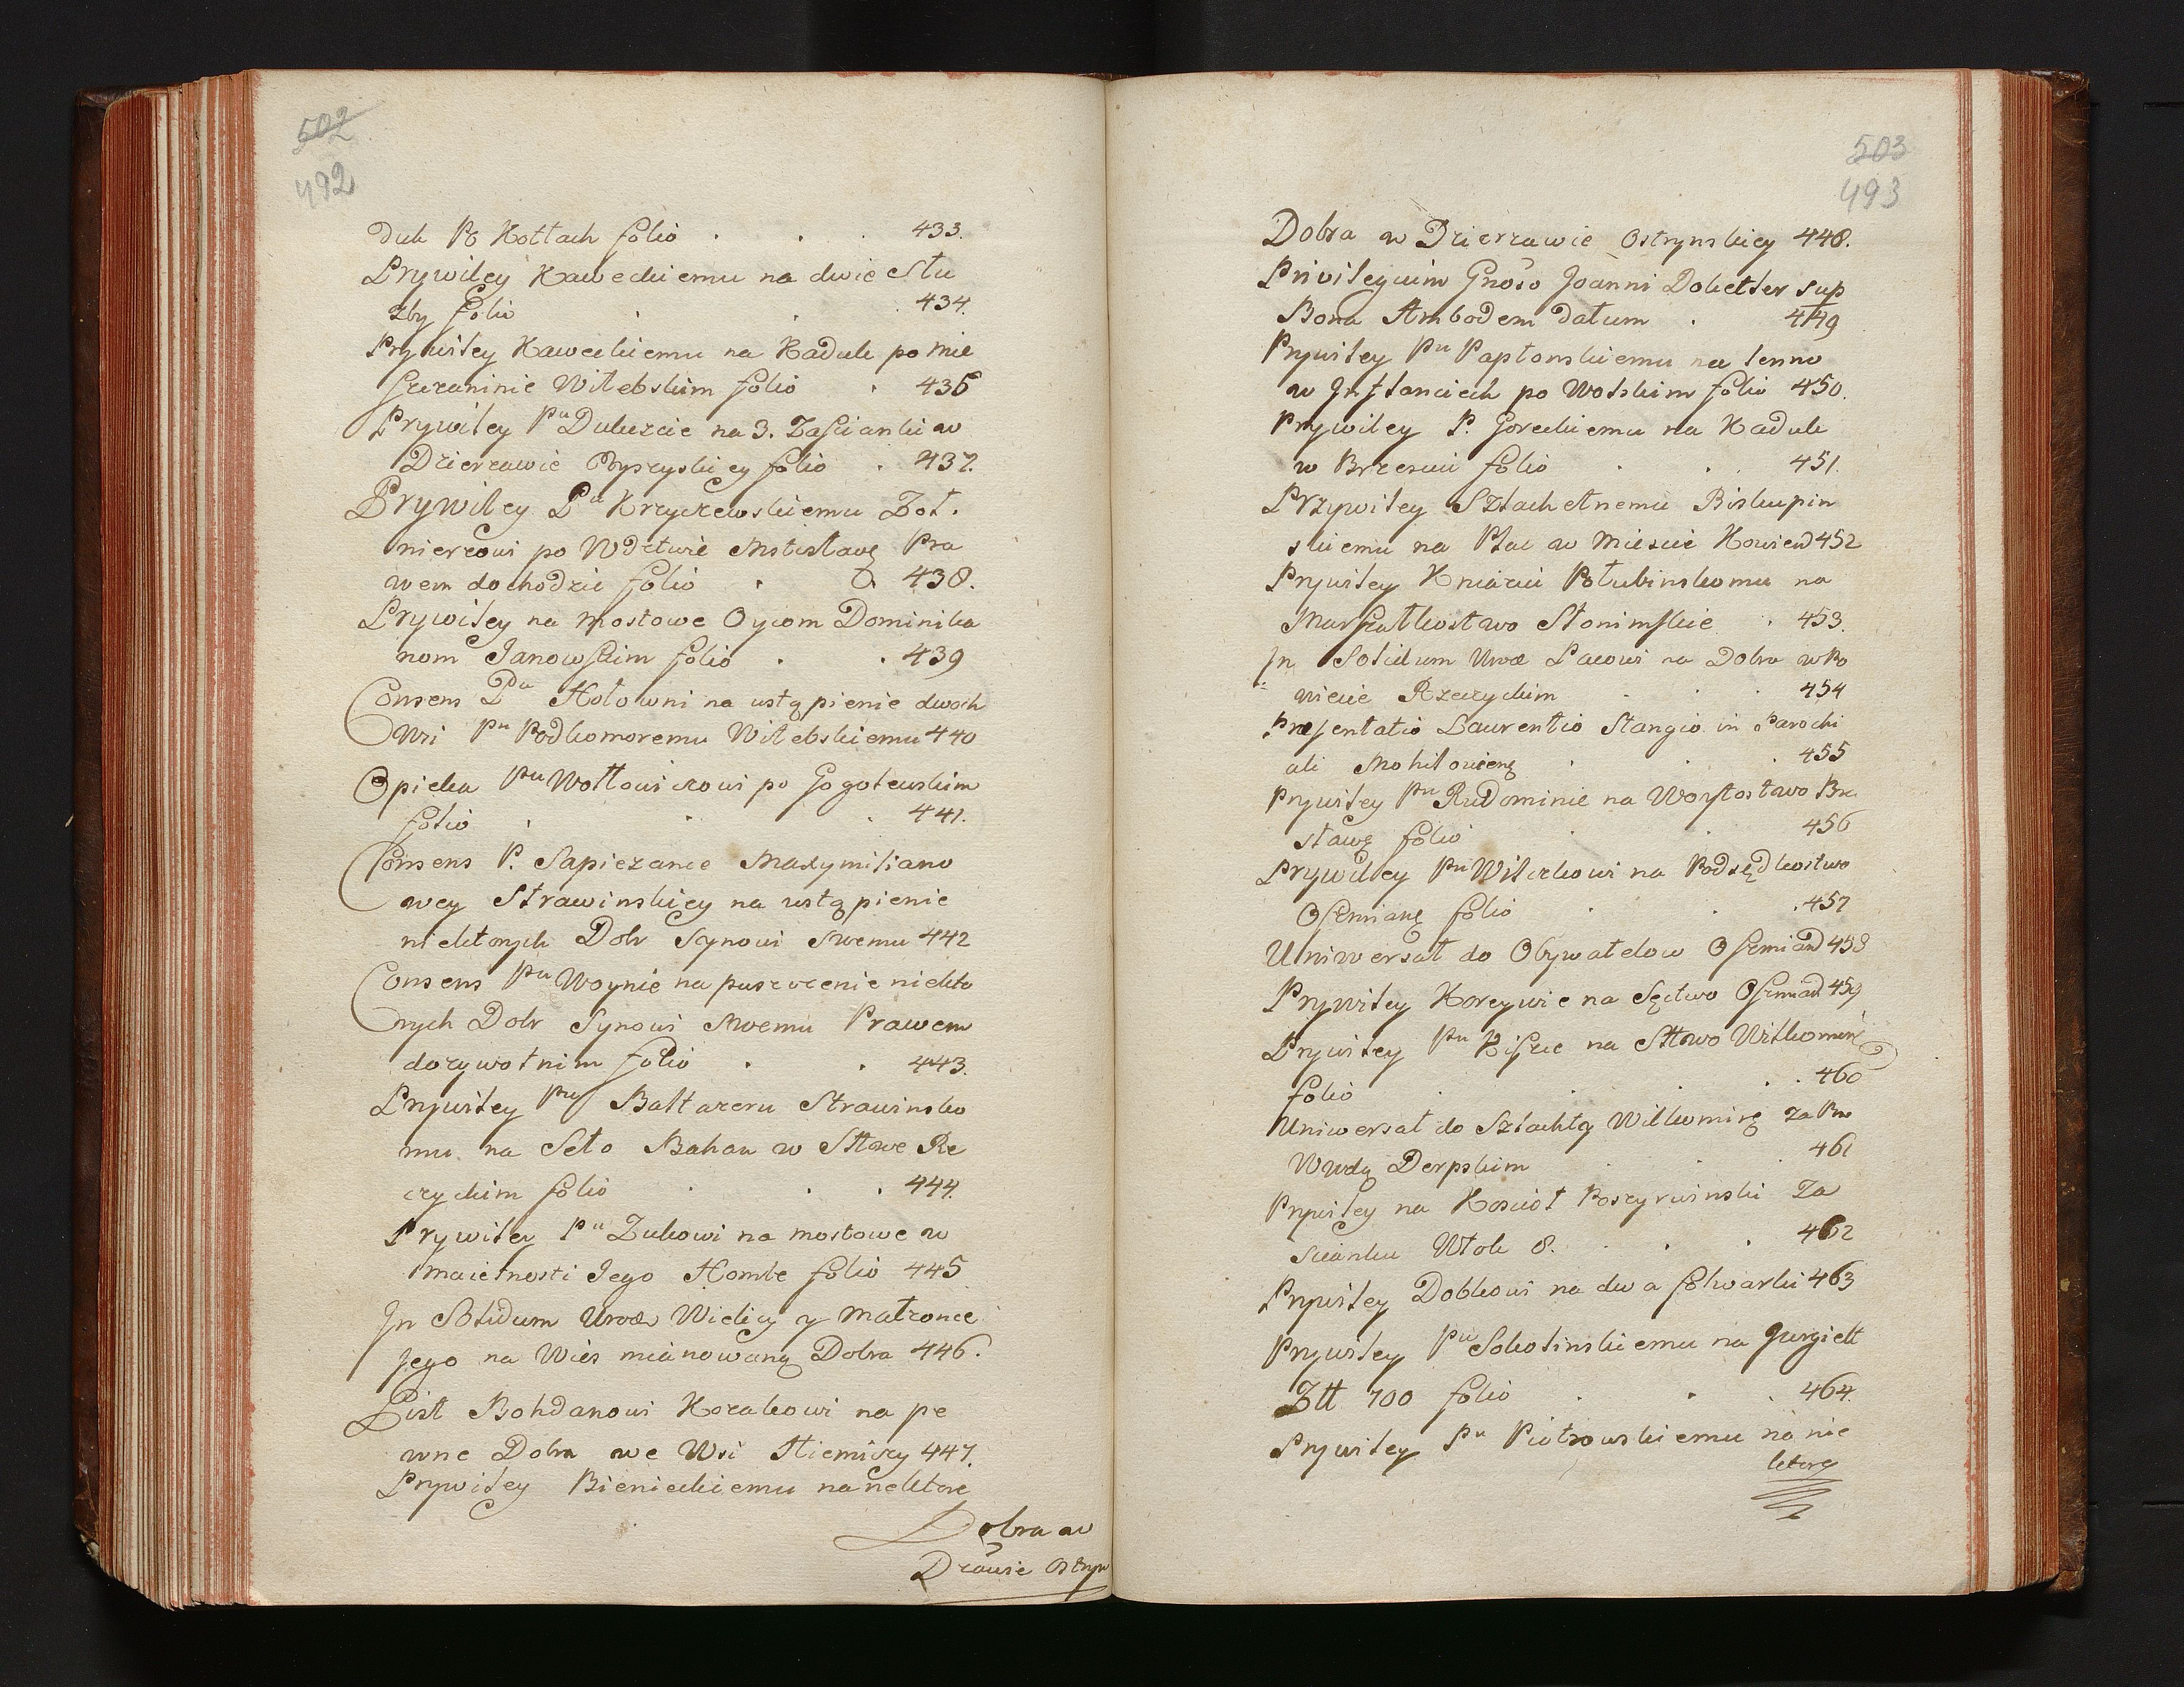 502
492
duk Po Kottach folio . . . 433.
Prywiley Kaweckiemu na dwie Słu
zby folio . . . 434.
Prywiley Kaweckiemu na Kaduk po Mie
szczaninie Witebskim folio . 436
Prywiley Pu Dukszcie na 3. Zascianki w
Dzierzawie folio . 437.
Prywiley Pu Krzyczewskiemu Zoł.
nierzowi po Wdztwie Mstisławę Pra
wem dochodzic folio . 438.
Prywiley na Mostowe Oycom Dominika
nom Janowskim folio . . 439
Consens Pu Hołowni na ustąpienie dwoch
Wsi Pu Podkomoremu Witebskiemu 440
Opieka Pu Wołłowiczowi po Gogolewskim
folio . . . 441.
Consens P. Sapiezance Maxymiliano
wey Strawinskiey na ustąpienie
niektorych Dobr Synowi Swemu 442
Consens Pu Woynie na puszczenie niekto
rych Dobr Synowi Swemu Prawem
dozywotnim folio . . 443.
Prywiley Pu Baltazeru Strawinsko
mu na Seło Bahan w Sttwe Re
czyckim folio . . . 444.
Prywiley Pu Zukowi na mostowe w
Maietnosti Jego Homle folio 445
In Solidum Urodz Wielicy y Małzonce
Jego na Wies mianowaną Dobra 446.
List Bohdanowi Kozakowi na pe
wne Dobra we Wsi Niemiszy 447.
Prywiley Bienieckiemu na nektore
Dobra w
Dzawie Ostryn
503
493
Dobra w Dzierzawie Ostrynskiey 448.
Privilegium Gnoso Joanni Dokettor sup
Bona Ambodem datum . 449
Prywiley Pu Papłonskiemu na lenno
w Inflanciech po Wolskim folio 450.
Prywiley P. Goreckiemu na Kaduk
w Brzesciu folio . . 451.
Przywiley Szlachetnemu Biskupin
skiemu na Plac w Miescie Kowien 452
Prywiley Kniaziu Połubinskomu na
Marszałkostwo Słonimskie . 453.
In Solidum Urodz Pacowi na Dobra w Po
wiecie Rzeczyckim . . . 454
Præsentatio Laurentio Stangio in Parochi
ali Mohilowieną . . . 455
Prywiley Pu Rudominie na Woytostwo Bra
sławę folio . . 456
Prywiley Pu Wilczkowi na Podsędkostwo
Oszmianę folio . . . 457
Uniwersał do Obywatelow Oszmian 458
Prywiley Koreywie na Sęctwo Oszmian 459
Prywiley Pu Kiszce na Sttwo Wiłkomirę
folio . . . . 460
Uniwersał do Szlachty Wilkomirę za Pne
Wwdą Derpskim . . . 461
Prywiley na Kosciół Poszyrwinski Za
scianku Włok 8. . . . 462
Prywiley Dobkowi na dwa folwarki 463
Prywiley Pu Sokolinskiemu na Jurgielt
Ztt 700 folio . . . 464.
Prywiley Pu Piotrowskiemu na nie
ktorę